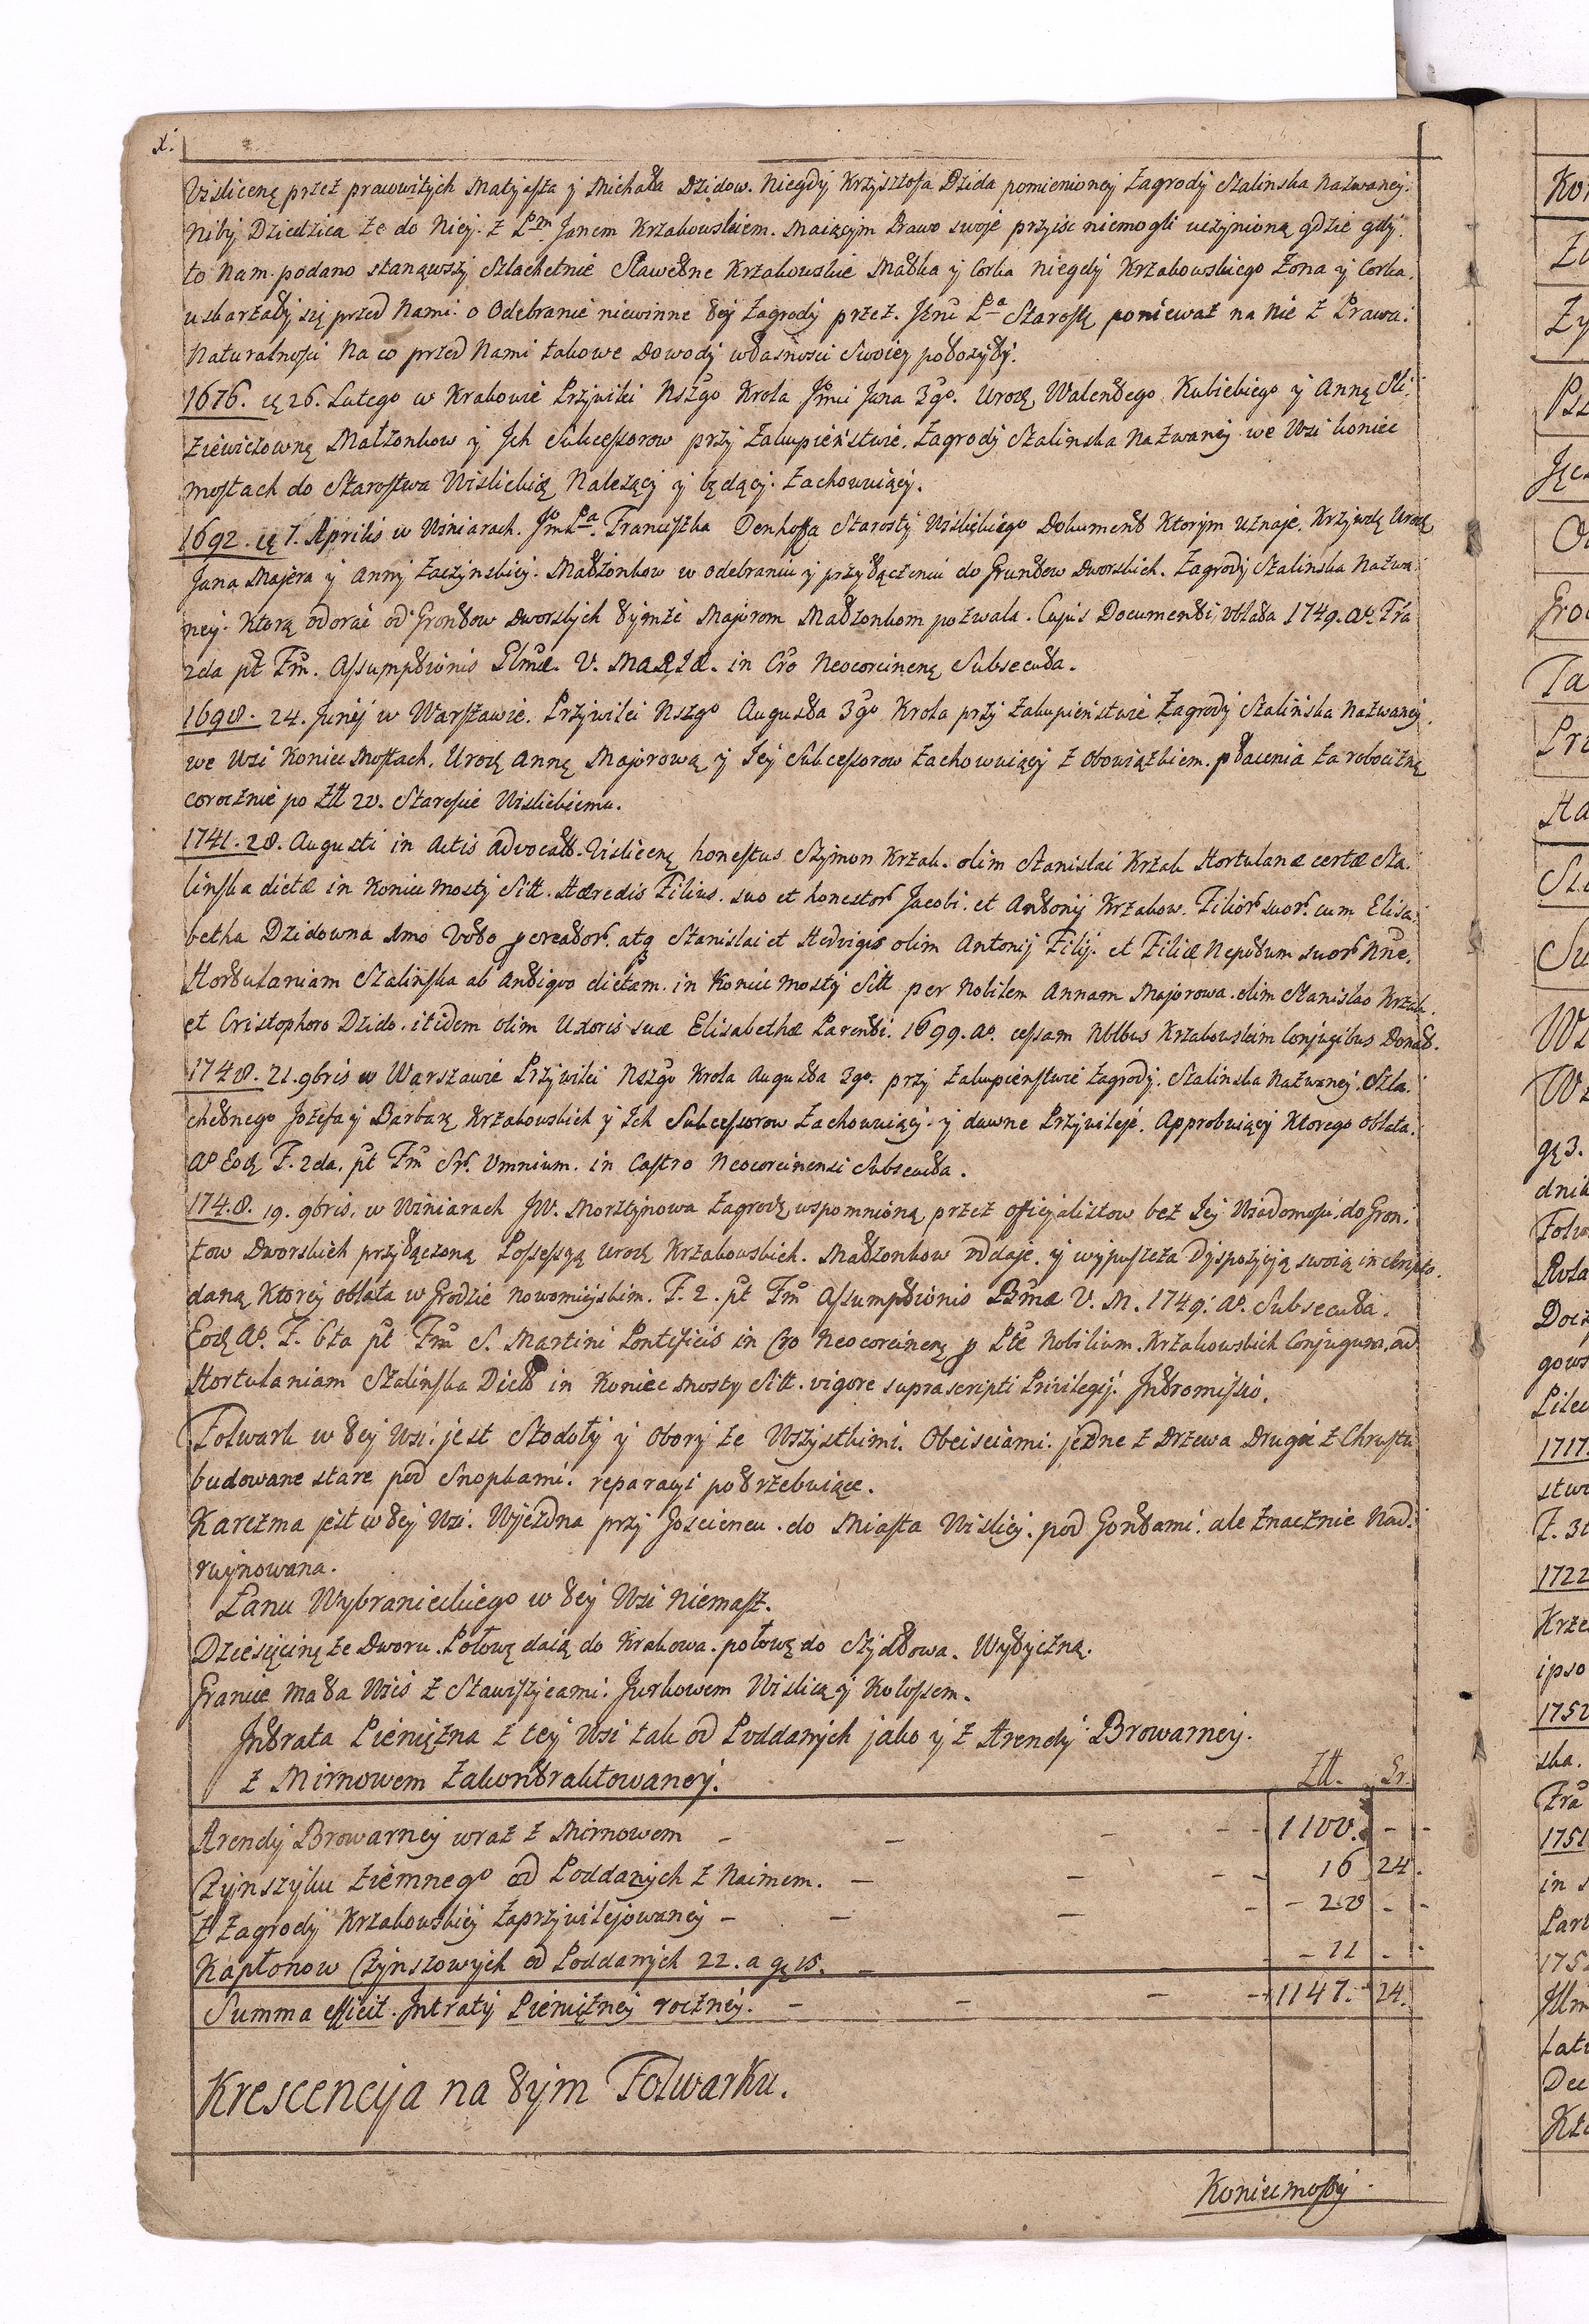 x.
Vislicenę przez prawowitych Matyasza y Michała Dzidow. Niegdy Krzysztofa Dzida pomienioney Zagrody Stalinska Nazwaney.
Niby Dziedzica że do Niey. z Pm Janem Krzakowskiem. Maiącym Prawo swoje przyisc niemogli uczynioną gdzie gdy.
to Nam. podano stanąwszy Szlachetnie Sławetne Krzakowskie Matka y Corka niegdy Krzakowskiego Żona y Corka.
uskarżały się przed Nami. o Odebranie niewinne tey Zagrody przez. Jmci Pa Starostę ponieważ na Nie z Prawa.
Naturalnosci Na co przed Nami takowe Dowody własnosci Swoiey położyły.
1676. ię 26. Lutego w Krakowie Przywilei Nszgo Krola Jmci Jana 3go. Urodź Walentego Kubickiego y Annę Sli
ziewiczownę Małżonkow y Jch Sukcessorow przy Zakupieństwie. Zagrody Stalinska Nazwaney we Wsi koniec
mostach do Starostwa Wislickię Należący y będący. Zachowuiący.
1692. ię 7. Aprilis w Winiarach. JmPa. Franciszka Denhoffa Starosty Wislickiego Dokument Ktorym Uznaje. Krzywdę Urodź
Jana Majera y Anny Łaczynskiey. Małżonkow w odebraniu y przyłączeniu do Gruntow Dworskich. Zagrody Stalinska Nazwa
ney. Ktorą odorai od Grontow Dworskych tymże Majorom Małżonkom pozwala. Cujus Documenti, oblata 1749. Ao. Fra
2da pt Fm. Assumptionis Blmæ. V. MARIÆ. in Cro Neocorcinenę Subsecuta.
1698. 24. Junij w Warszawie. Przywilei Nszgo Augusta 3go Krola przy Zakupieństwie Zagrody Stalińska Nazwaney.
we Wsi Koniec Mostach. Urodź Annę Majorową y Jey Sukcessorow Zachowuiący z Obowiązkiem. płacenia Za robociznę
corocznie po Złł 20. Staroscie Wislickiemu.
1741. 28. Augusti in Actis Advocatt. Vislicenę honestus Szymon Krzak. olim Stanislai Krzak Hortulanæ certæ Sta.
linska dictæ in Koniec mosty Sitt. Hæredis Filius. suo et honestor Jacobi. et Antonij Krzakow. Filior suor. cum Elisa
betha Dzidowna 1mo Voto pcreator. atq Stanislai et Hedvigis olim Antonij Filij. et Filiæ Nepotum suor Nne.
Hortulaniam Stalinska ab Antiquo dictam. in Koniec mosty Sitt per Nobilem Annam Majorowa. olim Stanislao Krzak.
et Cristophoro Dzido. itidem olim Uxoris suæ Elisabethæ Parenti. 1699. Ao. cessam Nblbus Krzakowskim Conjugibus Donatt.
1748. 21. 9bris w Warszawie Przywilei Nszgo Krola Augusta 3go. przy Zakupieństwie Zagrody. Stalinska Nazwaney. Szla.
chetnego Jozefa y Barbarę Krzakowskich y Ich Sukcessorow Zachowuiący. y dawne Przywileje. Approbuiący Ktorego oblata.
Ao Eodę F. 2da. pt Fm Sr. Omnium. in Castro Neocorcinensi Subsecuta.
1748. 19. 9bris. w Winiarach JW. Morsztynowa Zagrodę wspomnioną przez officyalistow bez Jey Wiadomosci. do Gron.
tow Dworskich przyłączoną Possessyą Urodź Krzakowskich. Małżonkow oddaje. y wypuszcza Dyspozycyą swoią in scripto.
daną Ktorey oblata w Grodzie Nowomieyskim. F. 2. pt Fm Assumptionis Bmæ V. M. 1749. Ao. Subsecuta.
Eodę Ao. F. 6ta pt Fm S. Martini Pontificis in Cro Neocorcinenę p Pte Nobilium. Krzakowskich Conjugum, ad
Hortulaniam Stalinska Dictt in Koniec mosty Sitt. vigore suprascripti Privilegij. Intromissio.
Folwark w tey Wsi. jest Stodoły y Obory ze Wszystkimi. Obeisciami. jedne z Drzewa Drugie z Chrustu
budowane stare pod Snopkami. reparacyi potrzebuiące.
Karczma jest w tey Wsi. Wjezdna przy Goscieńcu. do Miasta Wislicy. pod Gontami. ale Znacznie Nad.
ruynowana.
Łanu Wybranieckiego w tey Wsi Niemasz.
Dziesięcinę ze Dworu. Połowę daią do Krakowa. połowę do Szydłowa. Wytyczną.
Granice ma ta Wieś z Stawiszycami. Jurkowem Wislicą y Kolossem.
Intrata Pieniężna z tey Wsi tak od Poddanych jako y z Arendy Browarney.
z Mirnowem Zakontraktowaney.
Złł. Gr.
Arendy Browarney wraz z Mirnowem - - - - - 1100. - -
Czynszyku ziemnego od Poddanych z Naimem. - - - - 16 24.
Z Zagrody Krzakowskiey Zaprzywilejowaney - - - - - 20 - -
Kapłonow Czynszowych od Poddanych 22. a gę 15. - - - 11 - -
Summa efficit. Intraty Pieniężney roczney. - - - - 1147. 24.
Krescencyja na tym Folwarku.
Koniecmosty.